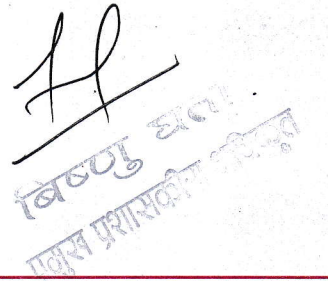 बिष्णु
प्रमुख प्रशासकीय अधिकृत